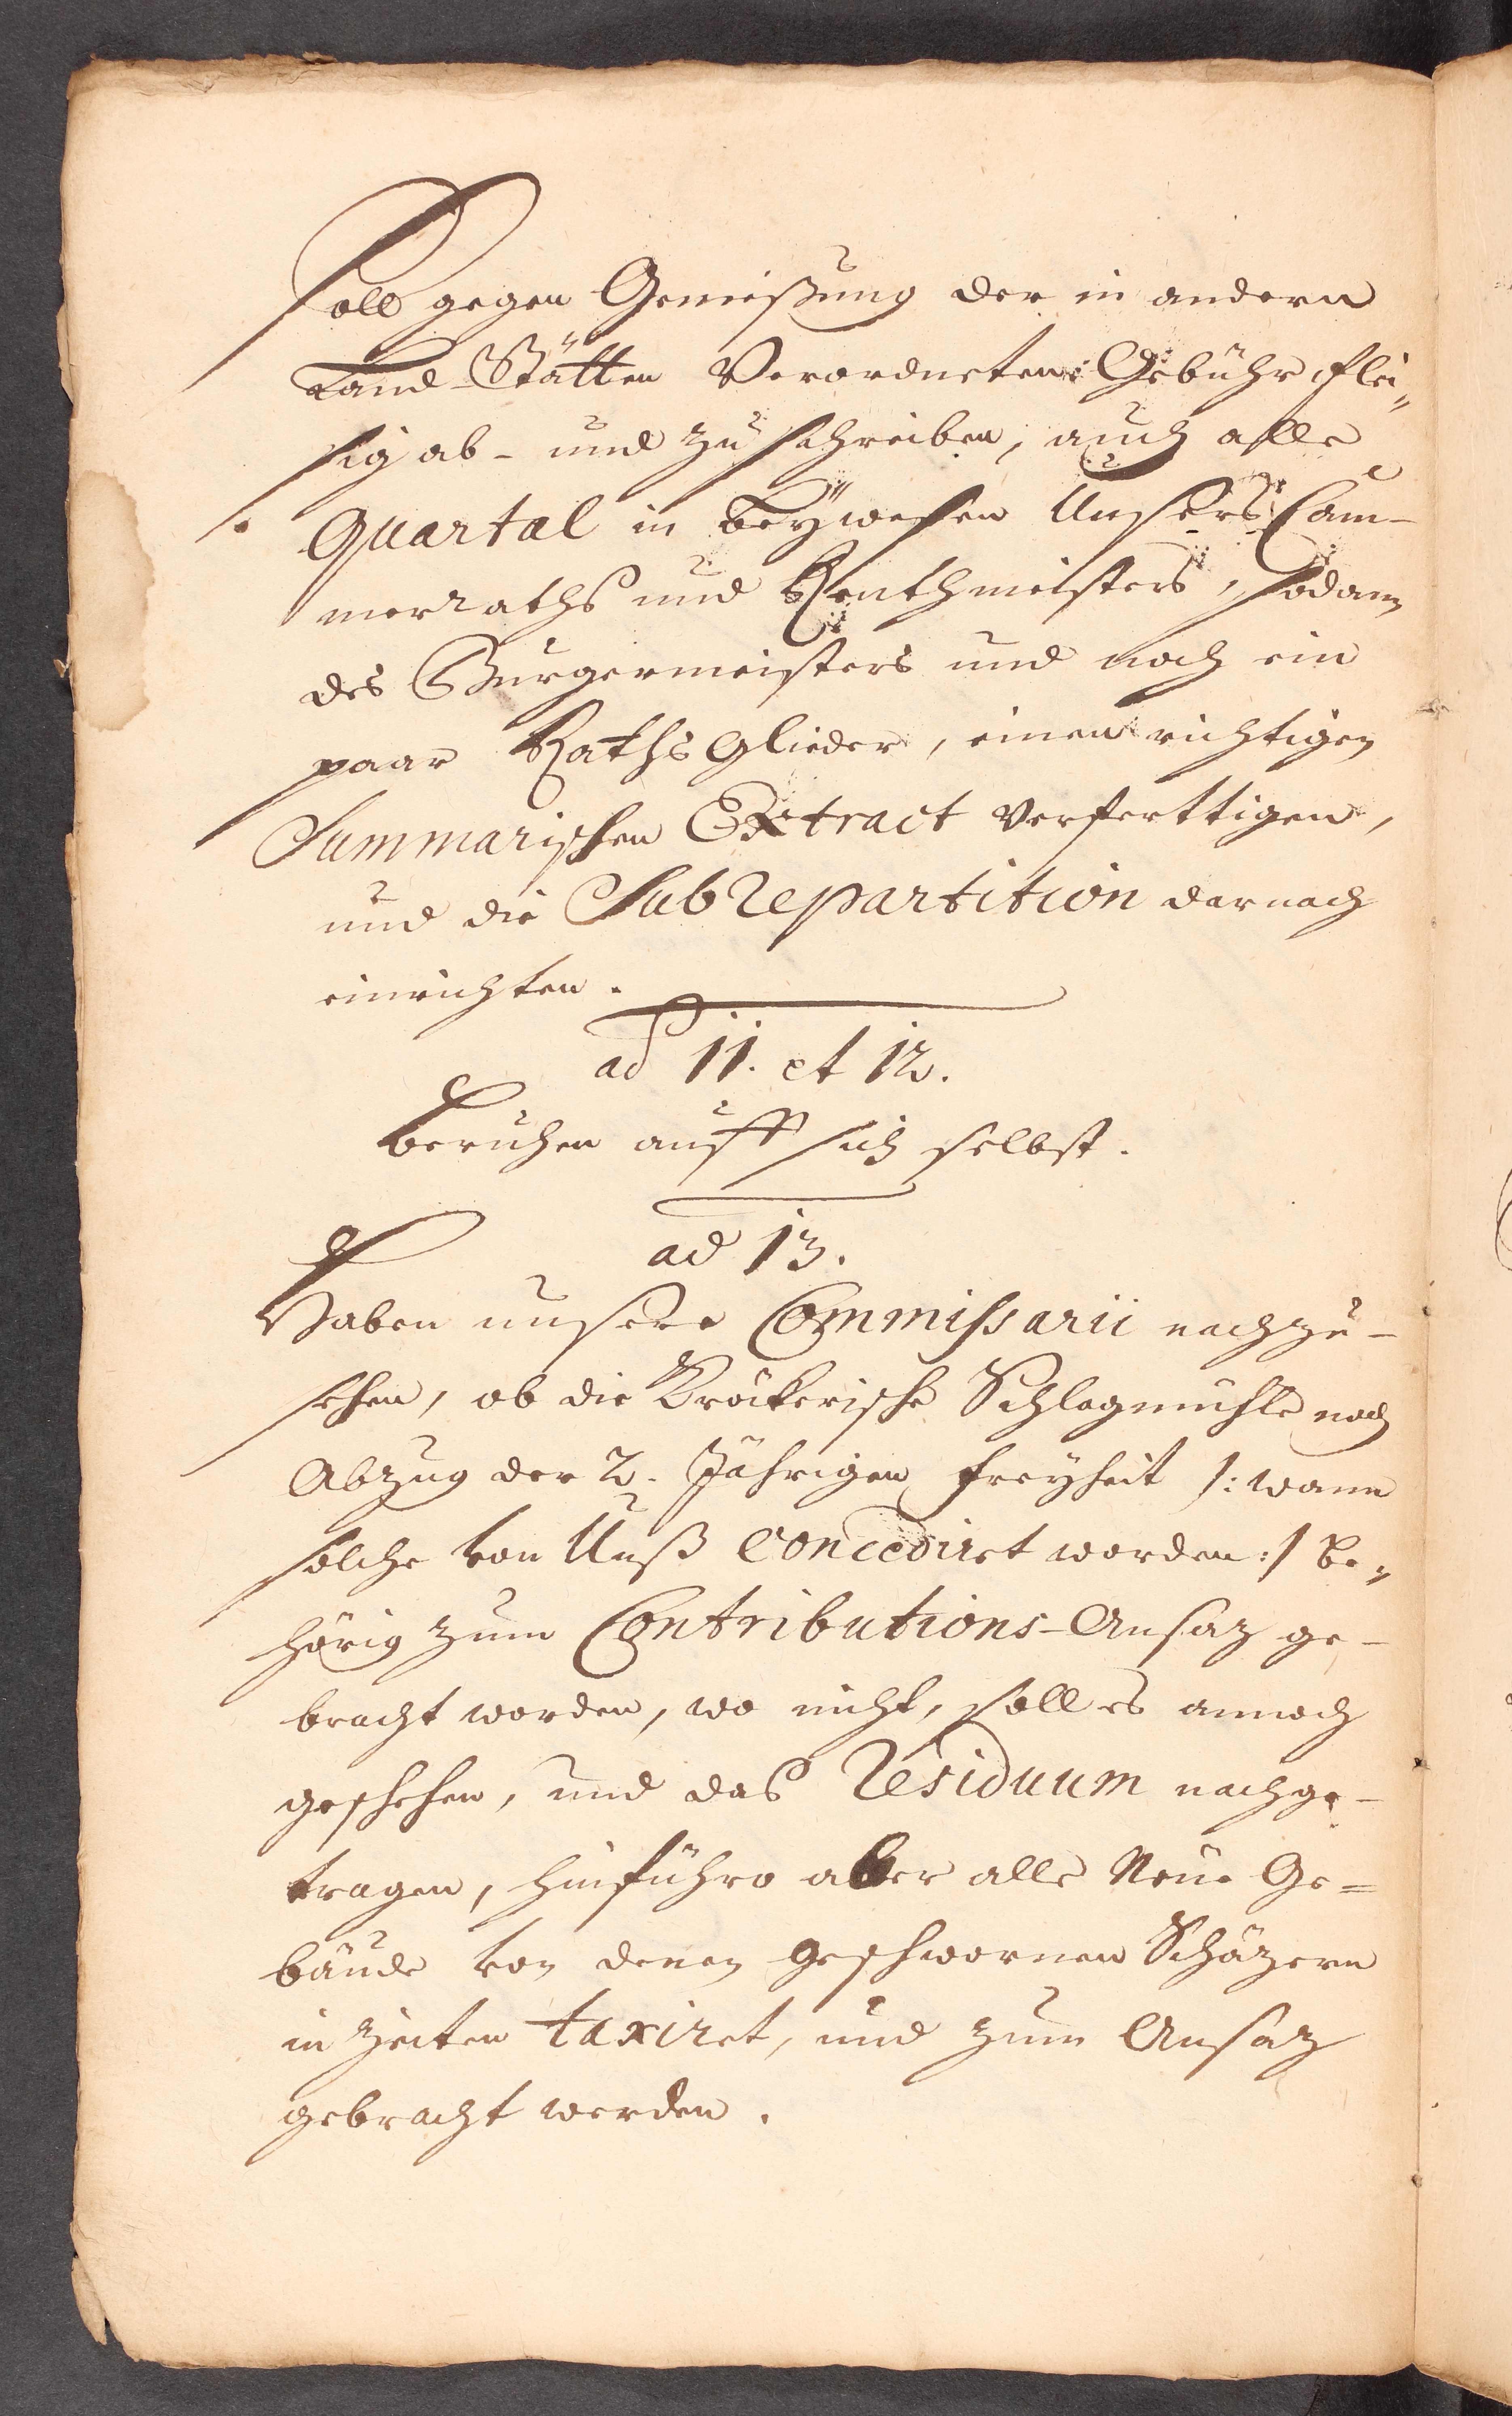 Soll gegen Genießung der in andern
Land-Stätten Verordneten Gebühr flei„
sig ab- und zuschreiben, auch alle
Quartal in beÿwesen Unsers Cam-
merraths und Renthmeisters, sodann
des Burgermeisters und noch ein
paar Raths Glieder, einen richtigen
Summarischen Extract verferttigen,
und die Subrepartition darnach
einrichten.
ad 11. et 12.
Beruhen auff sich selbst.
ad 13.
Haben unsere Commissarii nachzu-
sehen, ob die Kröckerische Schlagmühle nach
Abzug der 2. Jährigen freyheit /: wann
solche von Unß concediret worden :/ be„
hörig zum Contributions-Ansaz ge-
bracht worden, wo nicht, soll es annoch
geschehen, und das Residuum nachge-
tragen, hinführo aber alle Neue Ge=
bäude von denen geschwornen Schäzern
in Zeiten taxiret, und zum Ansaz
gebracht werden.